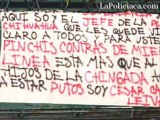 LaPoliciaca.com
AQUI SOY EL JEFE DE LA
CHIHUAHUA QUE LES QUEDE
CLARO A TODOS Y PARA
PINCHIS CONTRAS DE MIE
LINEA ESTA MAS QUE AL
HIJOS DE LA CHINGADA
A ESTAR PUTOS SOY CESAR